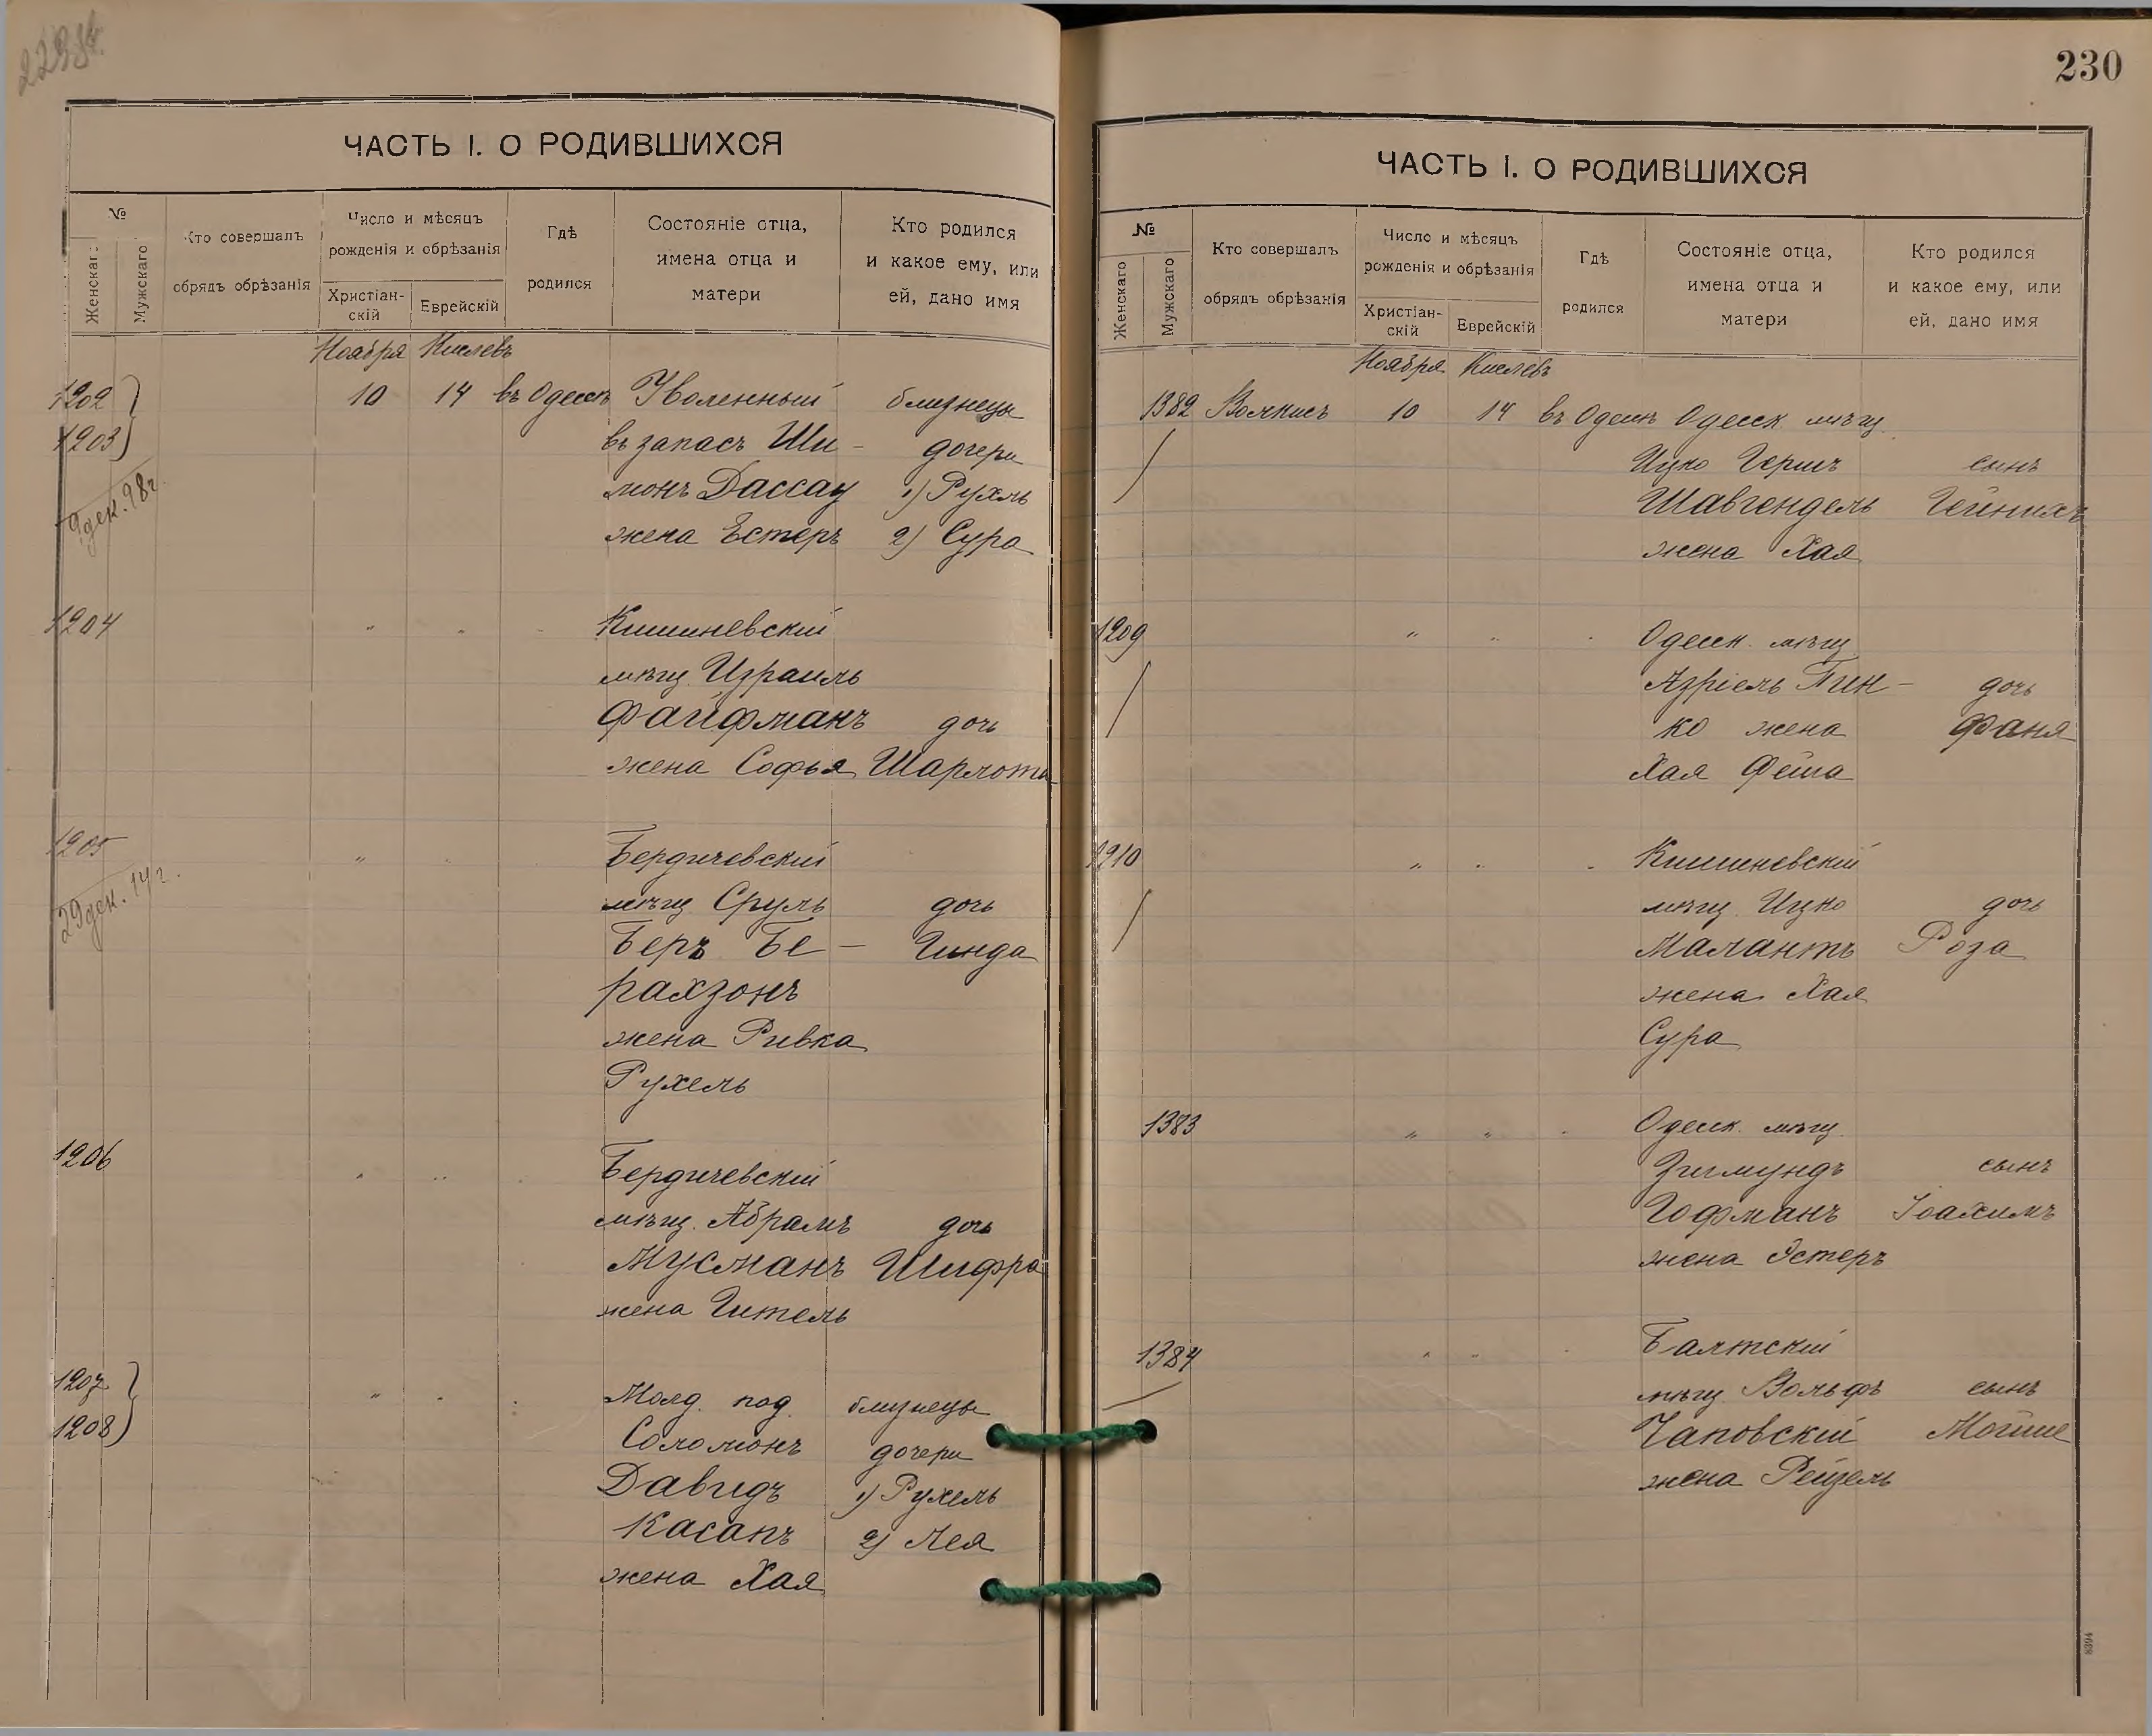 ЧАСТЬ I. О РОДИВШИХСЯ
№
Женскаго
Мужскаго
Кто совершалъ
обрядъ обрѣзанія
Число и мѣсяцъ
рожденія и обрѣзанія
Христіан-
скій
Еврейскій
Гдѣ
родился
Состояніе отца,
имена отца и
матери
Кто родился
и какое ему, или
ей, дано имя
Ноября Кислевъ
1202 10 14 въ Одессѣ Уволенный близнецы
1203 въ запасъ Ши- дочери
монъ Дассау 1) Рухль
9 дек. 98 г.
жена Естеръ 2) Сура
1204 " " Кишиневскій
мѣщ. Израиль
Файфманъ дочь
жена Софья Шарлота
1205 " " Бердичевскій
29 дек. 14 г.
мѣщ. Сруль дочь
Беръ Бе- Гинда
рахзонъ
жена Ривка
Рухель
1206 " " Бердичевскій
мѣщ. Абрамъ дочь
Мусманъ Шифра
жена Гитель
1207 " " Молд. под. близнецы
1208 Соломонъ дочери
Давидъ 1) Рухель
Касапъ 2) Лея
жена Хая
230
ЧАСТЬ I. О РОДИВШИХСЯ
№
Женскаго
Мужскаго
Кто совершалъ
обрядъ обрѣзанія
Число и мѣсяцъ
рожденія и обрѣзанія
Христіан-
скій
Еврейскій
Гдѣ
родился
Состояніе отца,
имена отца и
матери
Кто родился
и какое ему, или
ей, дано имя
Ноября Кислевъ
1382 10 14 въ Одессѣ Одесск мѣщ
Ицко Гершъ сынъ
Шавгендель Гейнихъ
жена Хая
1209 " " Одесск. мѣщ
Азріель Пин- дочь
ко жена Фаня
Хая Фейга
1210 " " Кишиневскій
мѣщ. Ицко дочь
Малантъ Роза
жена Хая
Сура
1383 " " Одесск. мѣщ.
Зигмундъ сынъ
Гофманъ Іоахимъ
жена Эстеръ
1384 " " Балтскій
мѣщ. Вольфъ сынъ
Чаповскій Мойше
жена Рейзель
8394